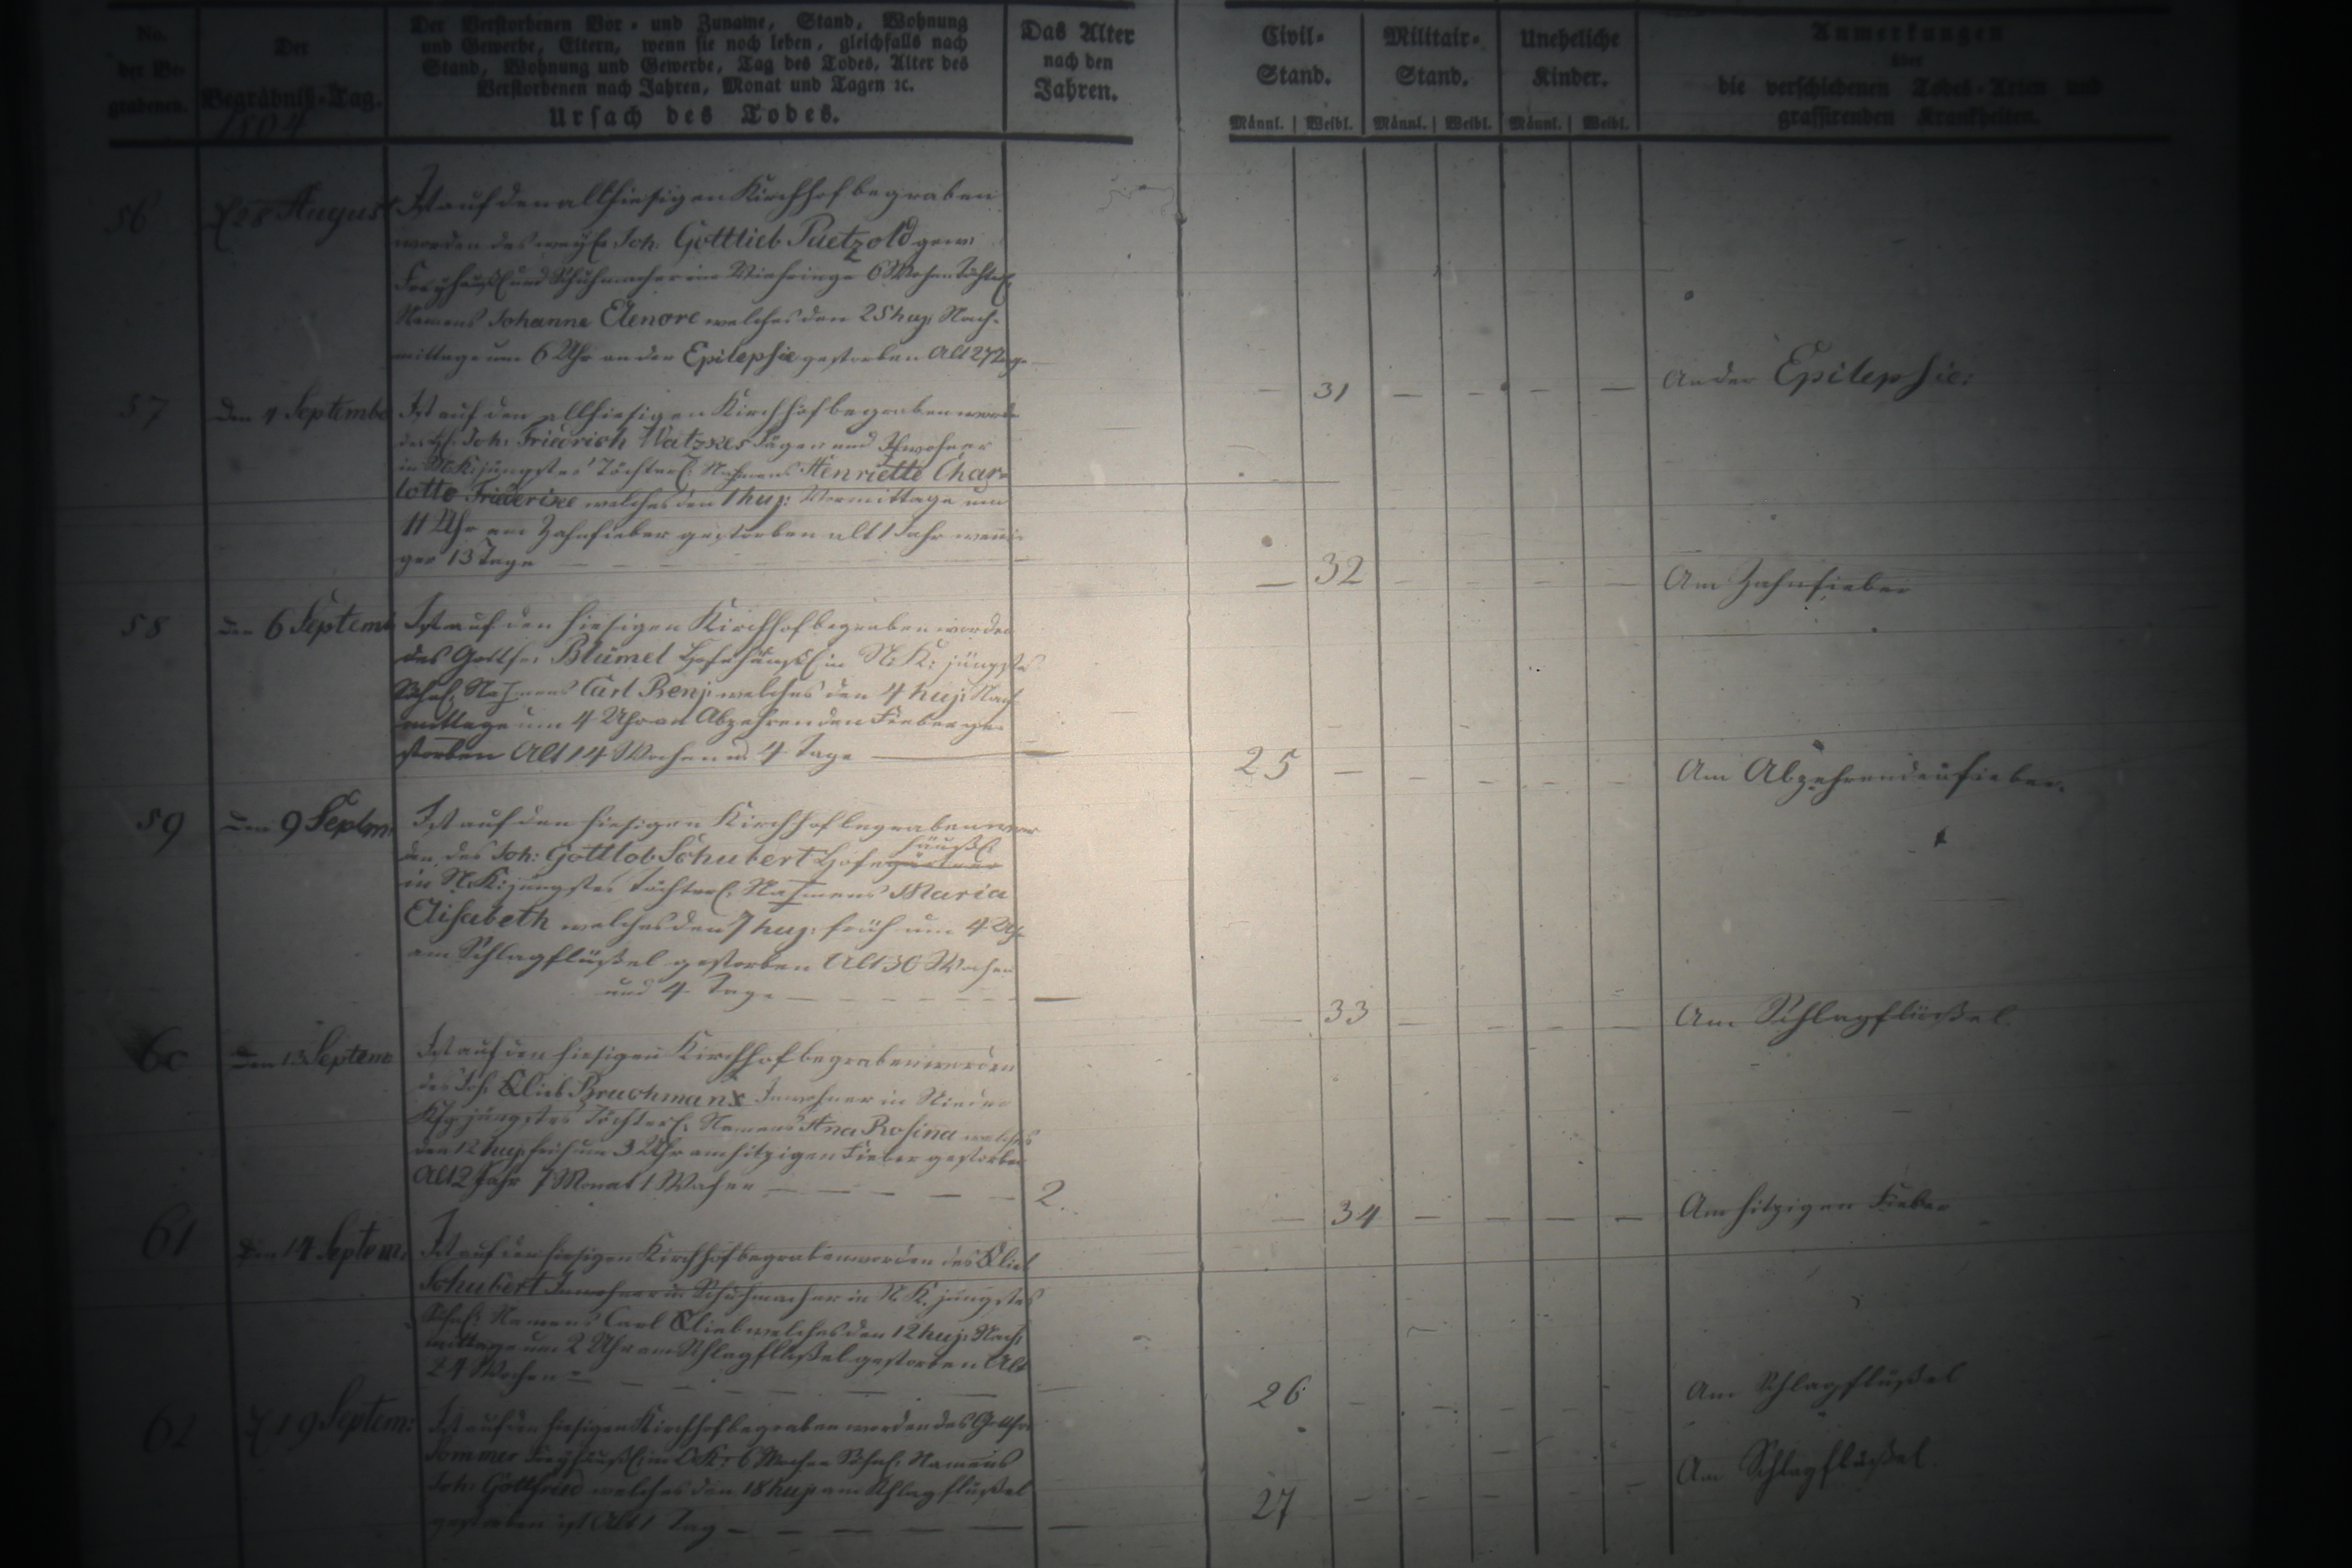 No.
der Be-
grabenen.
Der
Begräbniß-Tag.
1804
Der Verstorbenen Vor- und Zuname, Stand, Wohnung
und Gewerbe, Eltern, wenn sie noch leben, gleichfalls nach
Stand, Wohnung und Gewerbe, Tag des Todes, Alter des
Verstorbenen nach Jahren, Monat und Tagen ꝛc.
Ursach des Todes.
Das Alter
nach den
Jahren.
Civil-
Stand.
Männl. | Weibl.
Militair-
Stand.
Männl. | Weibl.
Uneheliche
Kinder.
Männl. | Weibl.
Anmerkungen
über
die verschiedenen Todes-Arten und
grassirenden Krankheiten.
56
28 August
Ist auf den allhiesigen Kirchhof begraben
worden des Joh. Gottlieb Paetzold gew:
und Schuhmacher 6 Wochen Töchterl:
Namens Johanne Elenore welches den 25 huj: Nach-
mittags um 6 Uhr an der Epilepsie gestorben Alt 27 Tage
— 31 — — — —
An der Epilepsie:
57
den 4 Septembe
Ist auf den allhiesigen Kirchhof begraben worde
Joh: Friedrich Watzkes Jäger und Inwohner
in N: K: jüngstes Töchterl: Nahmens Henriette Char=
lotte Friederike welches den 1 huj: Vormittags um
11 Uhr am Zahnfieber gestorben alt 1 Jahr weni-
ger 13 Tage — — —
— 32 — — — —
Am Zahnfieber
58
den 6 Septemb
Ist auf den hiesigen Kirchhof begraben worden
des Gottfr: Blümel Hofehäusl: in N: K: jüngstes
Söhnl: Nahmens Carl Benj: welches den 4 huj: Nach-
mittags um 4 Uhr an Abzehrenden Fieber ge-
storben Alt 14 Wochen u. 4 Tage —
25 — — — — —
Am Abzehrendenfieber.
59
den 9 Septm:
Ist auf den hiesigen Kirchhof begraben wor
häusl:
den des Joh: Gottlob Schubert Hofegärtner
in N: K: jüngstes Töchterl: Nahmens Maria
Elisabeth welches den 7 huj: früh um 4 Uhr
am Schlagflüßel gestorben Alt 30 Wochen
und 4 Tage — — — —
— 33 — — — —
Am Schlagflüßel.
60
Den 13 Septemb
Ist auf den hiesigen Kirchhof begraben worden
des Joh: Bruchmanns Inwohner in Nieder
jüngstes Töchterl: Namens Ana Rosina welches
den 12 huj: früh um 3 Uhr am hitzigen Fieber gestorben
Alt 2 Jahr 7 Monat 1 Woche — — — — 2.
— 34 — — — —
Am hitzigen Fieber
61
Den 14 Septem:
Ist auf den hiesigen Kirchhof begraben worden des
Schubert Inwohner u: Schuhmacher in N. K. jüngstes
Söhnl: Namens Carl welches den 12 huj: Nach-
mittags um 2 Uhr am Schlagflüßel gestorben Alt
24 Wochen — — — —
26 — — — — —
Am Schlagflüßel
62
19 Septem:
Ist auf den hiesigen Kirchhof begraben worden des Gottfr:
Sommer Freyhäusl: in O K: 6 Wochen Söhnl: Namens
Joh: Gottfried welches den 18 huj: am Schlagflüßel
gestorben ist Alt 1 Tag — — — — —
27 — — — — —
Am Schlagflüßel.